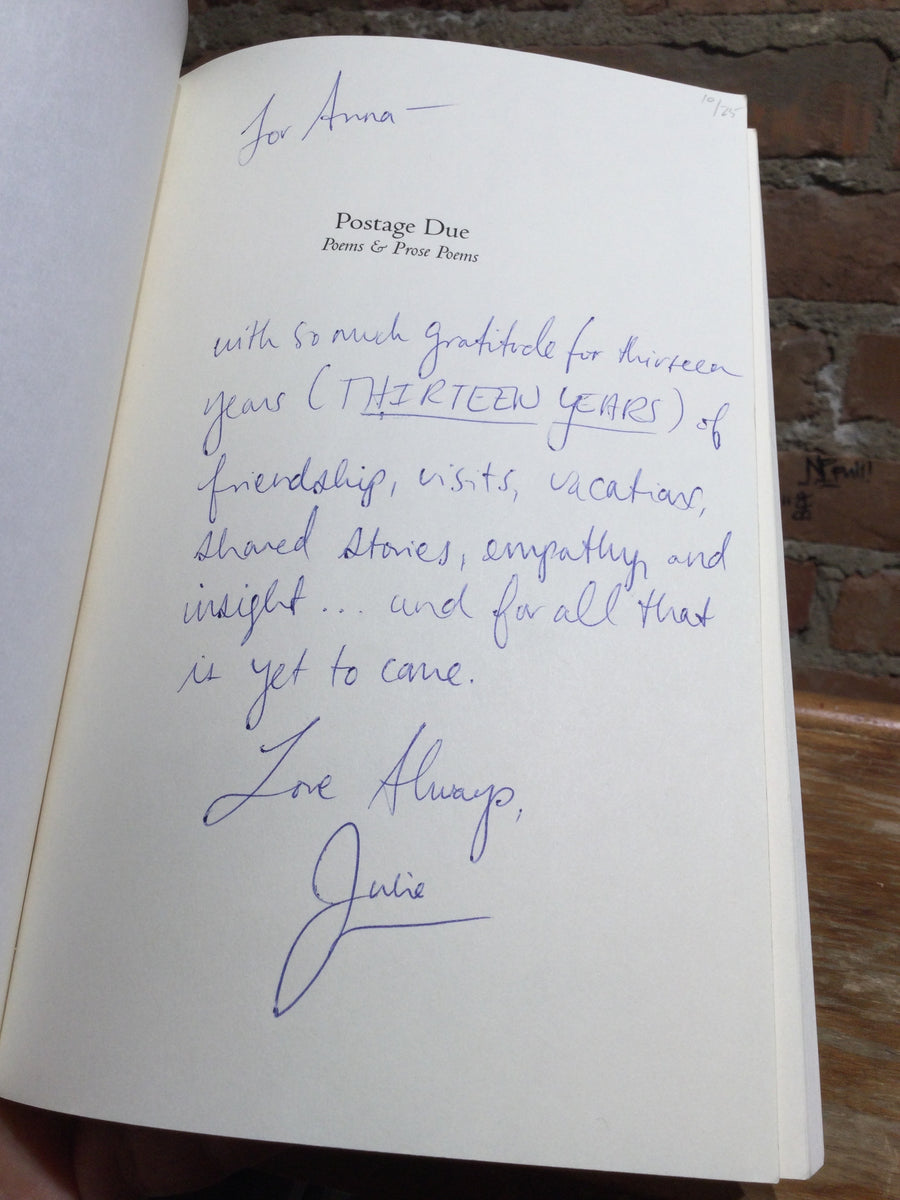 10/25
for Anna—
Postage Due
Poems & Prose Poems
with so much gratitude for thirteen
years (THIRTEEN YEARS) of
friendship, visits, vacations,
shared stories, empathy, and
insight ... and for all that
is yet to come.
Love Always,
Julie